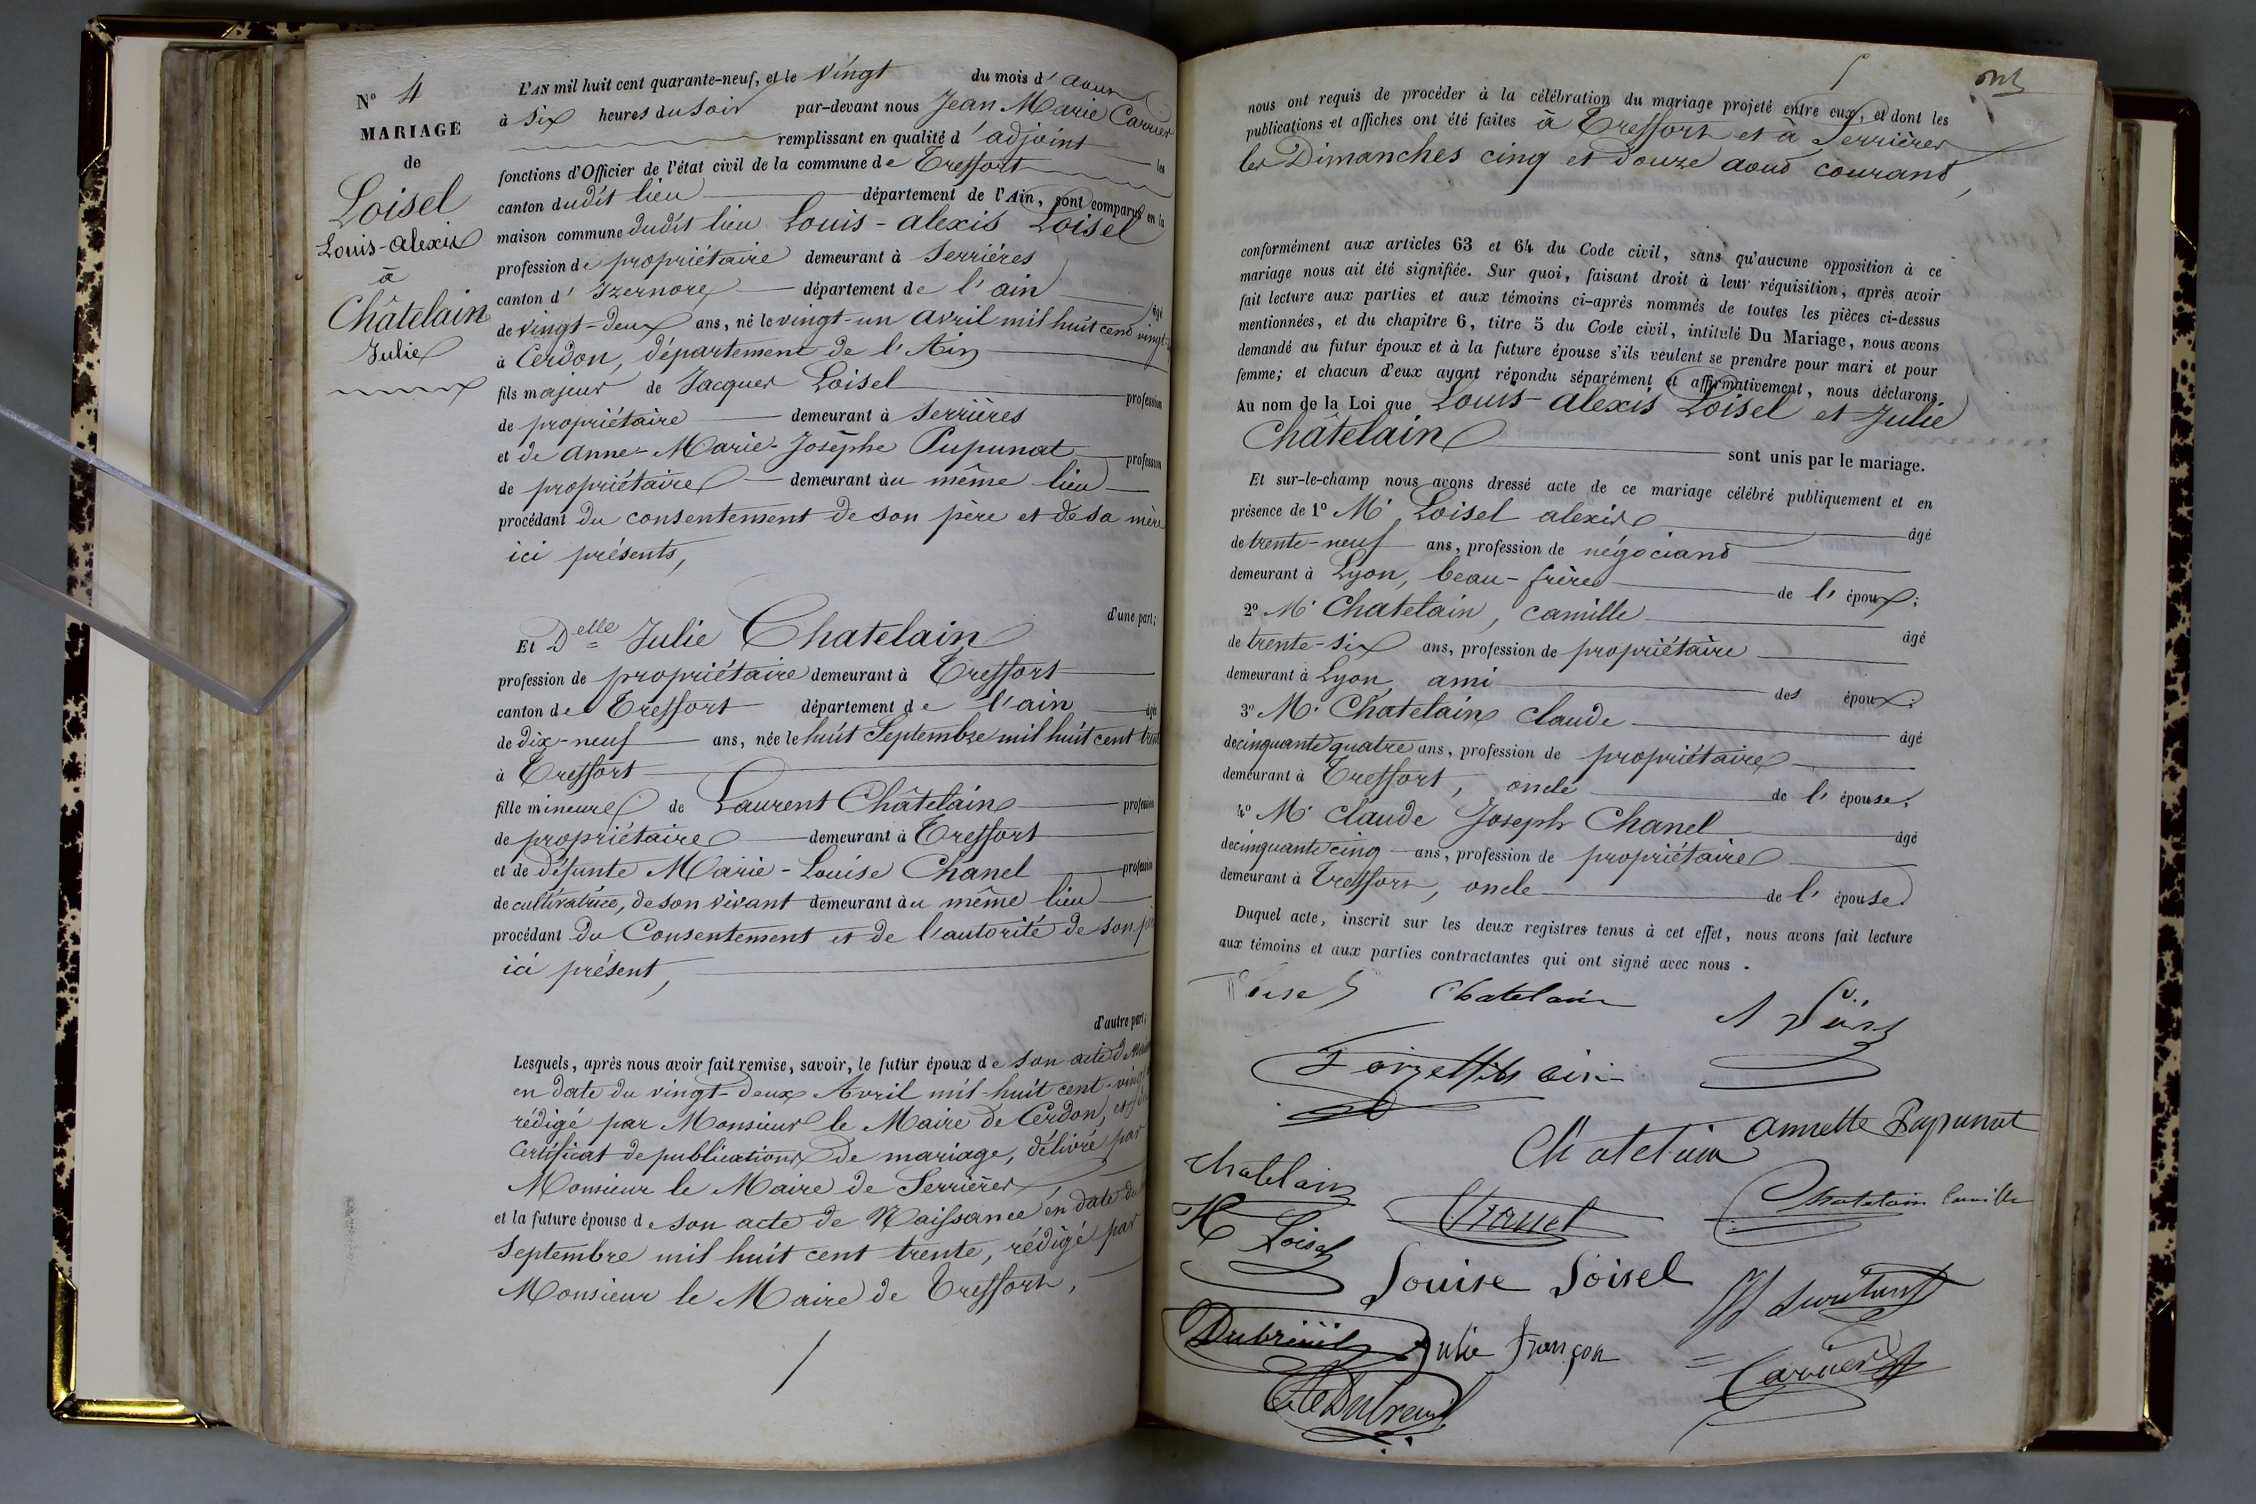 N° 4
MARIAGE
de
Loisel
Louis-alexis
à
Châtelain
Julie
L'AN mil huit cent quarante-neuf, et le vingt du mois d'aout
à six heures du soir par-devant nous Jean Marie Carrier
remplissant en qualité d'adjoint les
fonctions d'Officier de l'état civil de la commune de Treffort
canton dudit lieu département de l'Ain, sont comparus en la
maison commune dudit lieu Louis-alexis Loisel
profession de propriétaire demeurant à Serrières
canton d'Izernore département de l'ain âgé
de vingt-deux ans, né le vingt-un avril mil huit cent vingt
à Cerdon, département de l'Ain
fils majeur de Jacques Loisel profession
de propriétaire demeurant à Serrières
et de Anne-Marie-Josèphe Pupunat profession
de propriétaire demeurant au même lieu
procédant du consentement de son père et de sa mère
ici présents,
d'une part;
Et Delle Julie Chatelain
profession de propriétaire demeurant à Treffort
canton de Treffort département de l'ain âgée
de dix-neuf ans, née le huit Septembre mil huit cent trente
à Treffort
fille mineure de Laurent Châtelain profession
de propriétaire demeurant à Treffort
et de défunte Marie-Louise Chanel profession
de cultivatrice, de son vivant demeurant au même lieu
procédant du Consentement et de l'autorité de son
ici présent,
d'autre part;
Lesquels, après nous avoir fait remise, savoir, le futur époux de son acte de
en date du vingt-deux Avril mil-huit cent-vingt
rédigé par Monsieur le Maire de Cerdon, et
Certificat de publications de mariage, délivré par
Monsieur le Maire de Serrières
et la future épouse de son acte de Naissance en date du
Septembre mil huit cent trente, rédigé par
Monsieur le Maire de Treffort,
nous ont requis de procéder à la célébration du mariage projeté entre eux, et dont les
publications et affiches ont été faites à Treffort et à Serrières
les Dimanches cinq et douze aout courant,
conformément aux articles 63 et 64 du Code civil, sans qu'aucune opposition à ce
mariage nous ait été signifiée. Sur quoi, faisant droit à leur réquisition, après avoir
fait lecture aux parties et aux témoins ci-après nommés de toutes les pièces ci-dessus
mentionnées, et du chapitre 6, titre 5 du Code civil, intitulé Du Mariage, nous avons
demandé au futur époux et à la future épouse s'ils veulent se prendre pour mari et pour
femme; et chacun d'eux ayant répondu séparément et affirmativement, nous déclarons
Au nom de la Loi que Louis-alexis Loisel et Julie
Châtelain
sont unis par le mariage.
Et sur-le-champ nous avons dressé acte de ce mariage célébré publiquement et en
présence de 1° Mr Loisel alexis âgé
de trente-neuf ans, profession de négociant
demeurant à Lyon, beau-frère de l'époux;
2° Mr Chatelain, camille âgé
de trente-six ans, profession de propriétaire
demeurant à Lyon, ami des époux;
3° Mr Chatelain claude âgé
de cinquante quatre ans, profession de propriétaire
demeurant à Treffort, oncle de l'épouse.
4° Mr Claude Joseph Chanel âgé
de cinquante cinq ans, profession de propriétaire
demeurant à Treffort, oncle de l'épouse
Duquel acte, inscrit sur les deux registres tenus à cet effet, nous avons fait lecture
aux témoins et aux parties contractantes qui ont signé avec nous.
Chatelain
Chatelain annette Pupunat
Chatelain
Chatelain Camille
Loisel
Louise Loisel
Dubreuil Julie françon
Carrier
Dubreuil